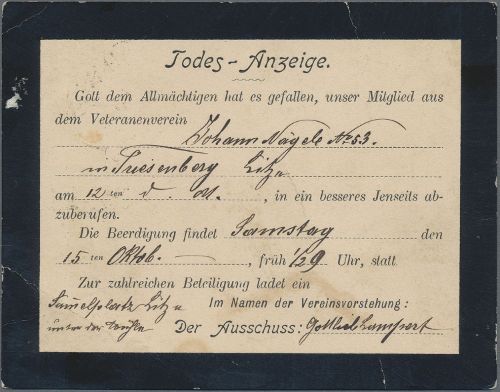 Todes-Anzeige.
Gott dem Allmächtigen hat es gefallen, unser Mitglied aus
dem Veteranenverein
Johann Nägele No 53.
in Triesenberg Litze
am 12 ten d. M., in ein besseres Jenseits ab-
zuberufen.
Die Beerdigung findet Samstag den
15 ten Oktob. —, früh 1/29 Uhr, statt
Zur zahlreichen Beteiligung ladet ein
Sammelplatz Litze Im Namen der Vereinsvorstehung:
unter der Der Ausschuss: Gottlieb Lampert